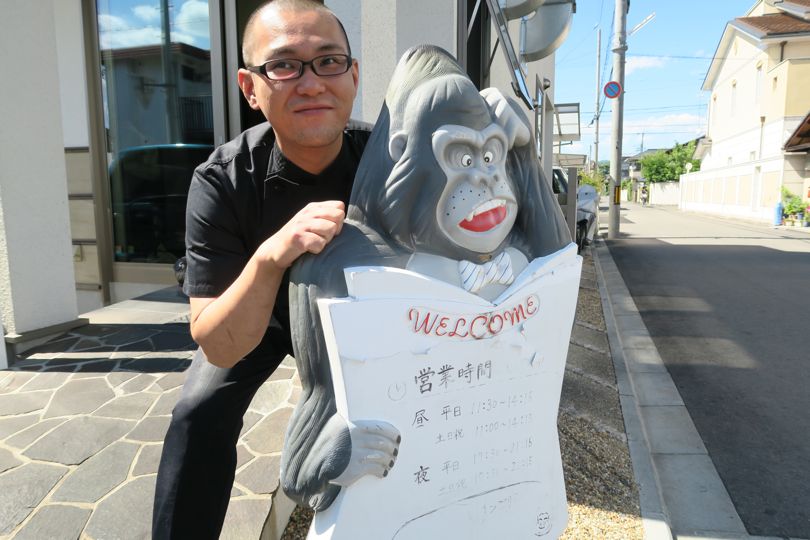 WELCOME
営業時間
昼 平日 11:30~14:15
土日祝 11:00~14:15
夜 平日 17:30~21:15
土日祝